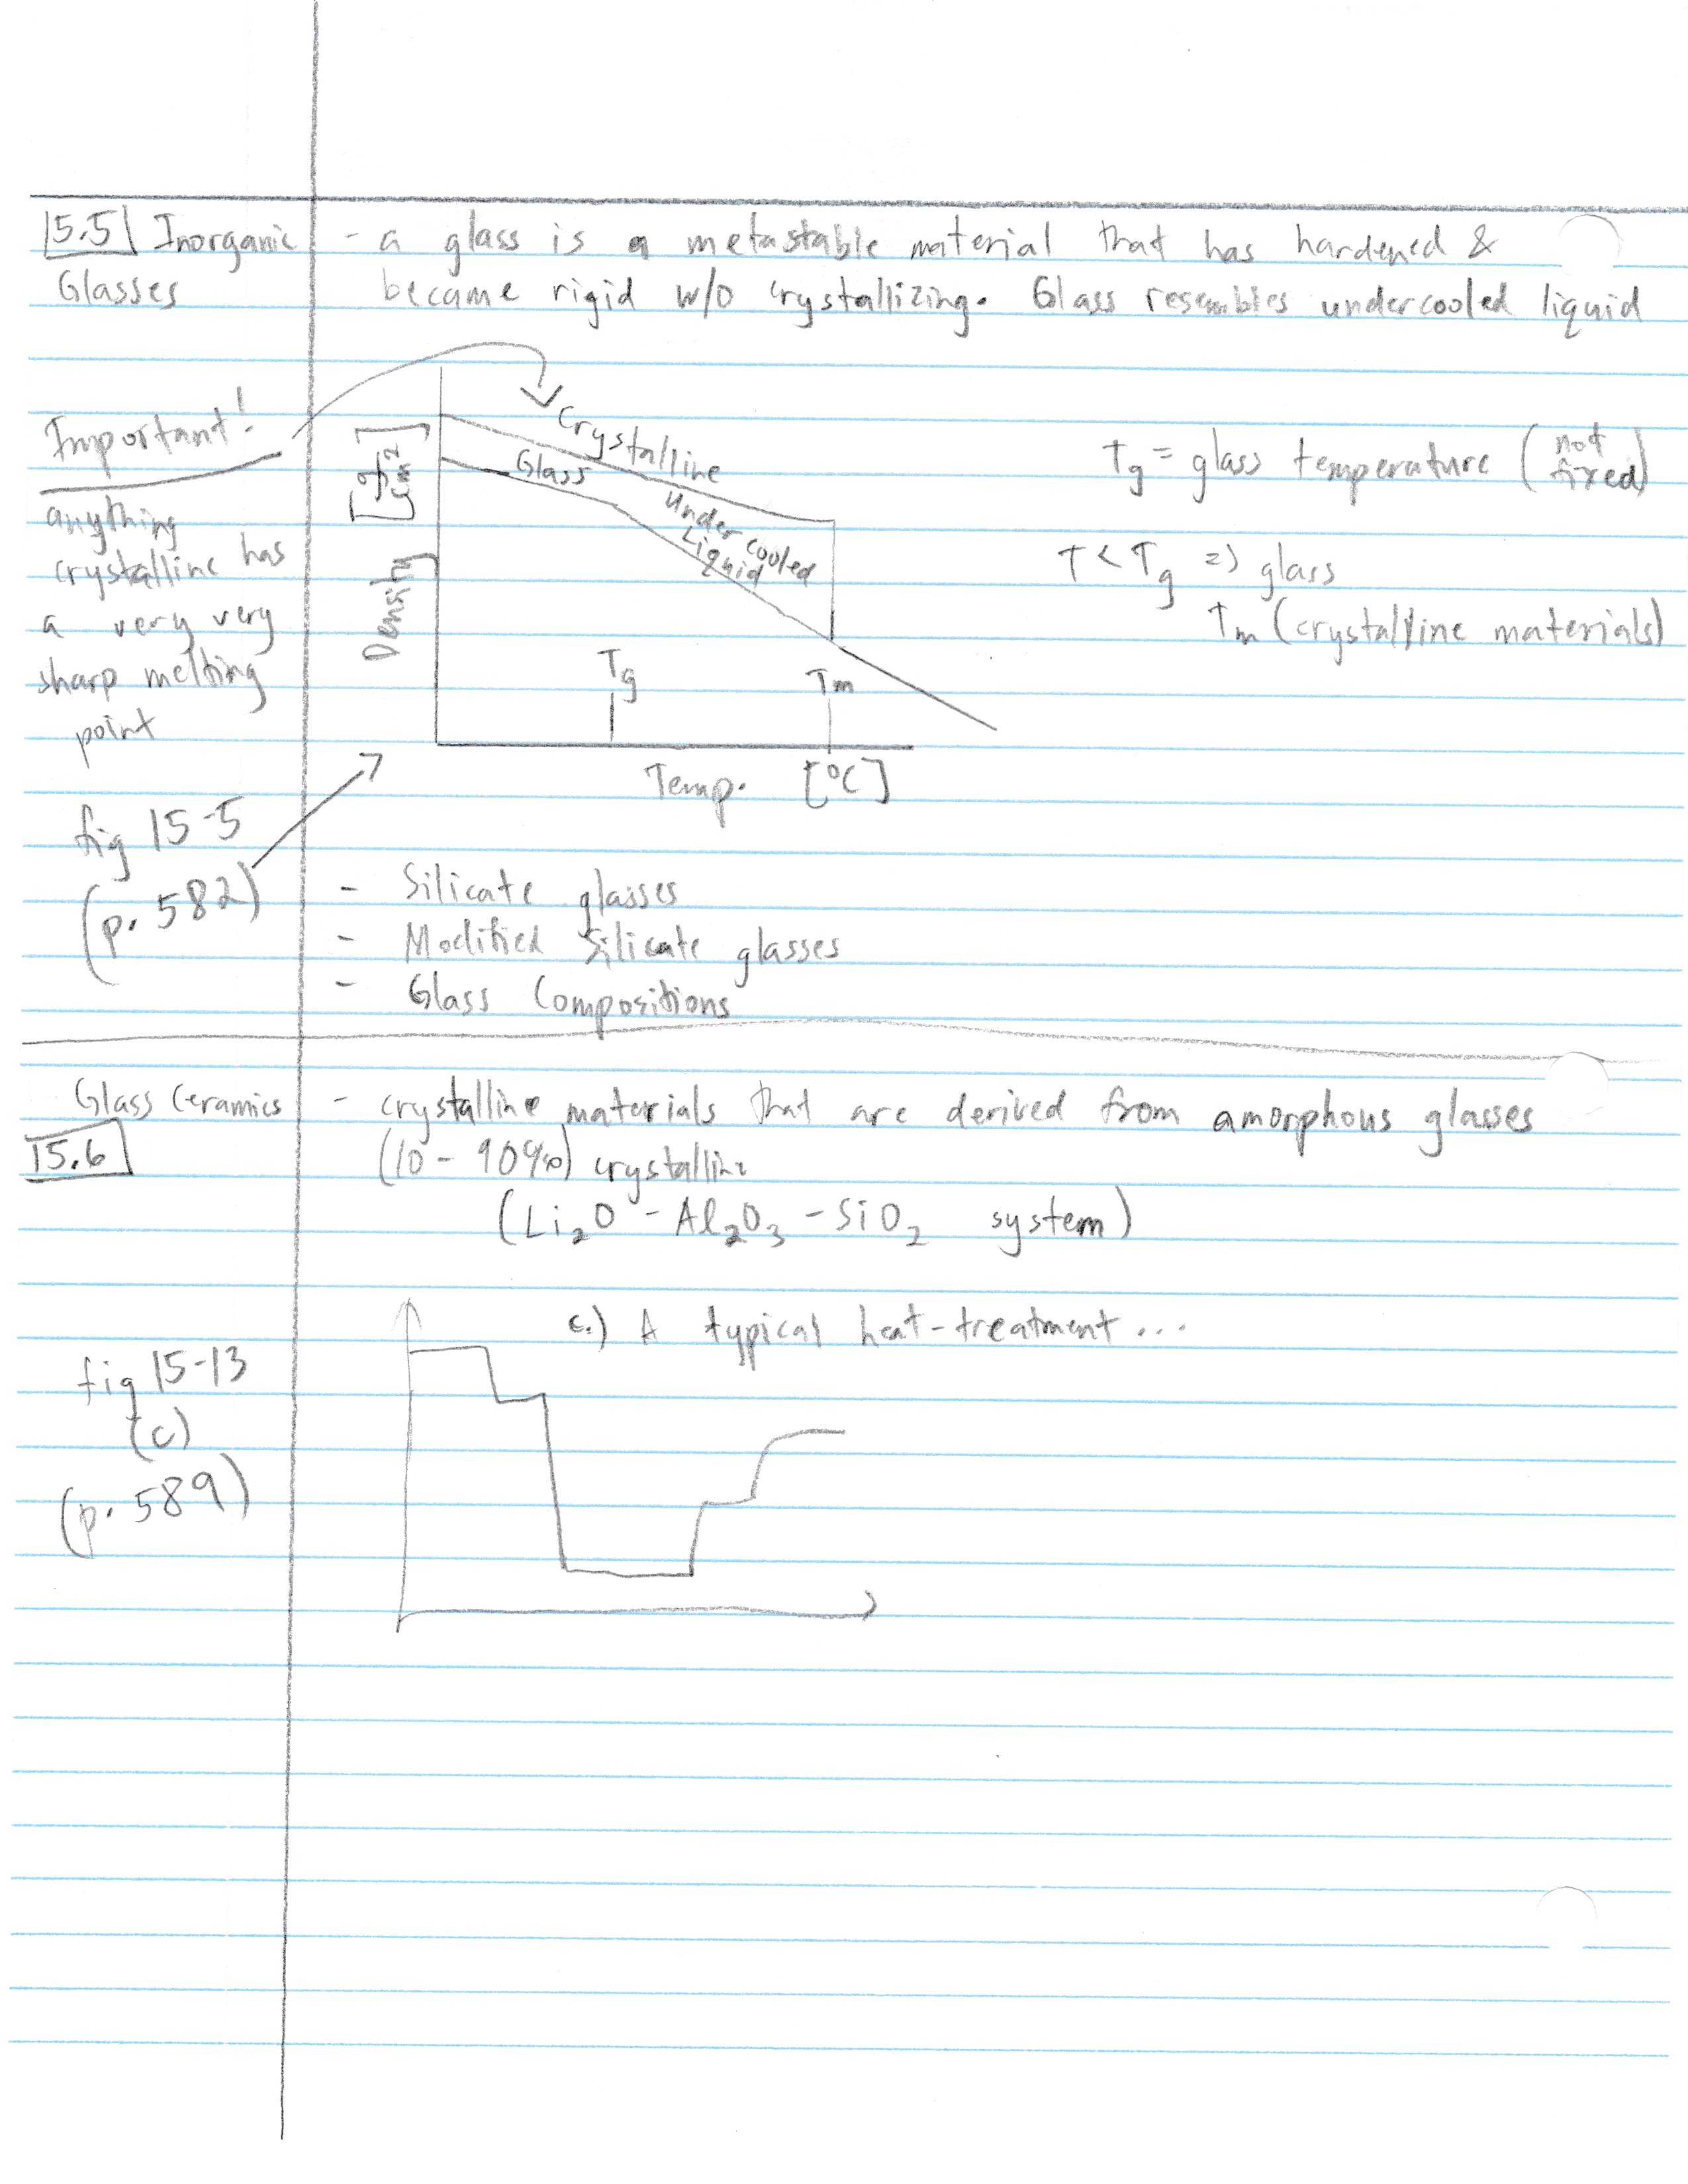 15.5 Inorganic
Glasses
- a glass is a metastable material that has hardened &
became rigid w/o crystallizing. Glass resembles undercooled liquid
Important!
anything
crystalline has
a very very
sharp melting
point
fig 15-5
(p. 582)
Density [g/cm²]
Crystalline
Glass
Undercooled
Liquid
Tg
Tm
Temp. [°C]
Tg = glass temperature (not fixed)
T < Tg => glass
Tm (crystalline materials)
- Silicate glasses
- Modified Silicate glasses
- Glass Compositions
Glass Ceramics
15.6
- crystalline materials that are derived from amorphous glasses
(10 - 90%) crystalline
(Li₂O - Al₂O₃ - SiO₂ system)
fig 15-13
(c)
(p. 589)
c.) A typical heat-treatment...